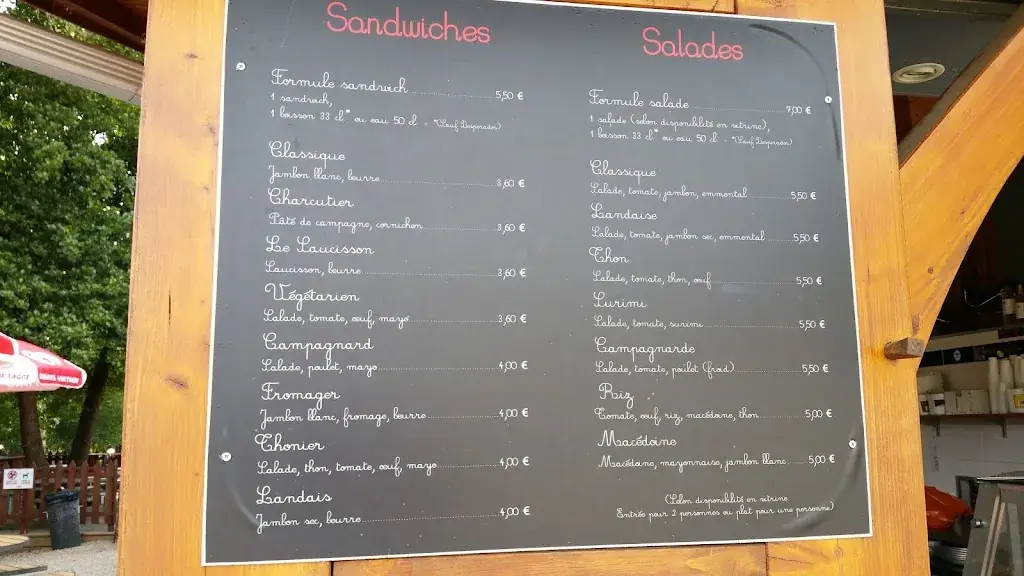 Sandwiches
Formule sandwich 5,50 €
1 sandwich,
1 boisson 33 cl* ou eau 50 cl - *(Sauf Desperados)
Classique
Jambon blanc, beurre 3,60 €
Charcutier
Pâté de campagne, cornichon 3,60 €
Le Saucisson
Saucisson, beurre 3,60 €
Végétarien
Salade, tomate, œuf, mayo 3,60 €
Campagnard
Salade, poulet, mayo 4,00 €
Fromager
Jambon blanc, fromage, beurre 4,00 €
Thonier
Salade, thon, tomate, œuf, mayo 4,00 €
Landais
Jambon sec, beurre 4,00 €
Salades
Formule salade 7,00 €
1 salade (selon disponibilité en vitrine),
1 boisson 33 cl* ou eau 50 cl - *(Sauf Desperados)
Classique
Salade, tomate, jambon, emmental 5,50 €
Landaise
Salade, tomate, jambon sec, emmental 5,50 €
Thon
Salade, tomate, thon, œuf 5,50 €
Surimi
Salade, tomate, surimi 5,50 €
Campagnarde
Salade, tomate, poulet (froid) 5,50 €
Riz
Tomate, œuf, riz, macédoine, thon 5,00 €
Macédoine
Macédoine, mayonnaise, jambon blanc 5,00 €
(Selon disponibilité en vitrine.
Entrée pour 2 personnes ou plat pour une personne)